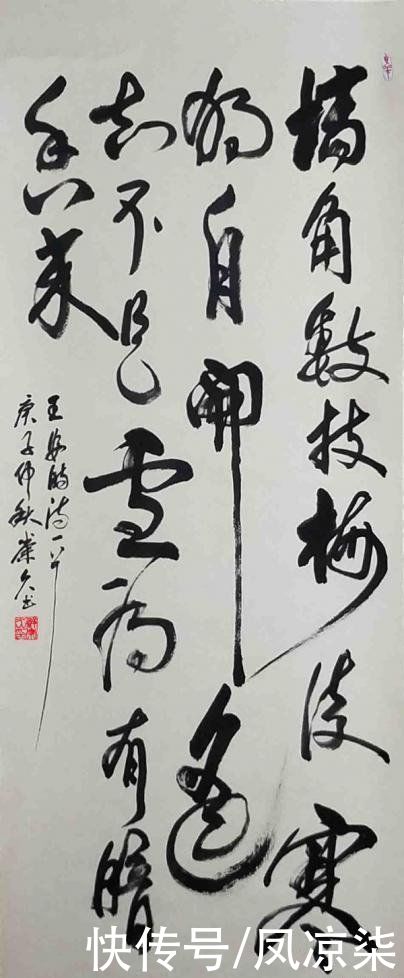 墙角數枝梅凌寒
独自開遥
知不是雪为有暗
香来
王安石诗一首
庚子仲秋
快传号/凤凉柒